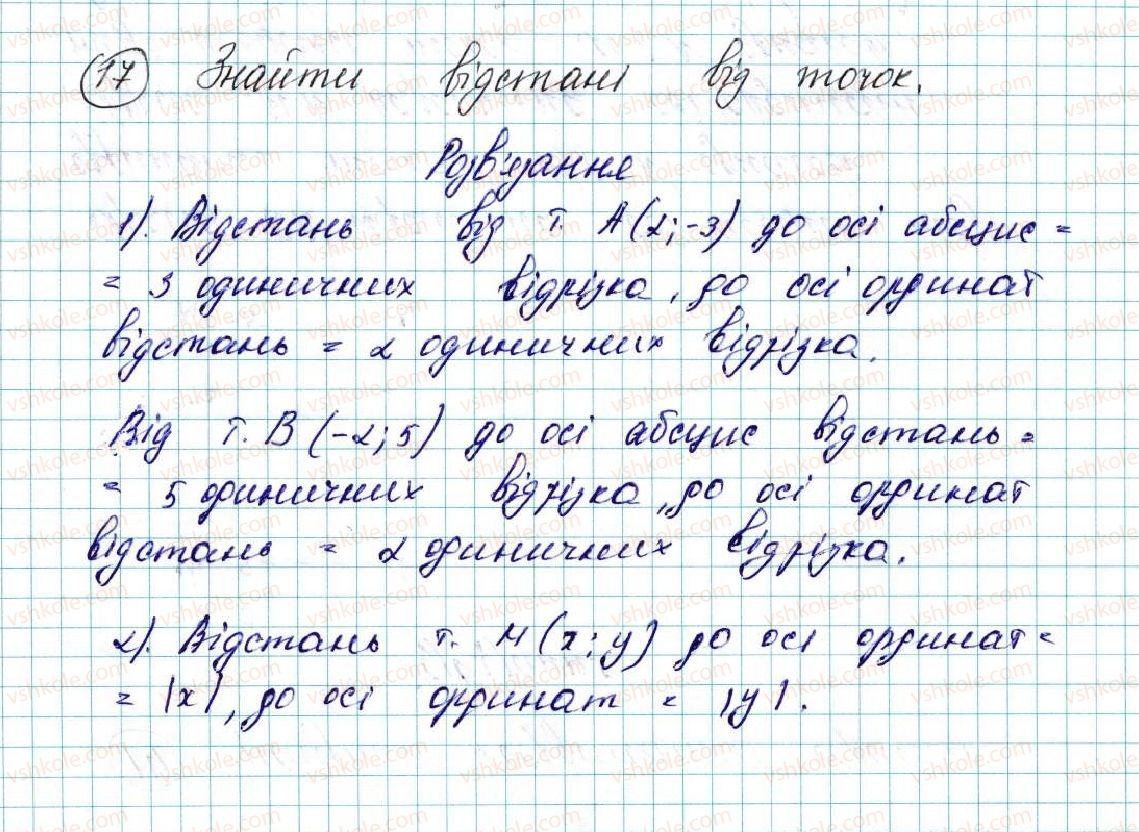 17 Знайти відстані від точок.
Розв'язання
1). Відстань від т. A(2;-3) до осі абсцис =
= 3 одиничних відрізка, до осі ординат
відстань = 2 одиничних відрізка.
Від т. B (-2; 5) до осі абсцис відстань =
= 5 одиничних відрізка, до осі ординат
відстань = 2 одиничних відрізка.
2). Відстань т. М (x; y) до осі ординат =
= |x|, до осі ординат = |y|.